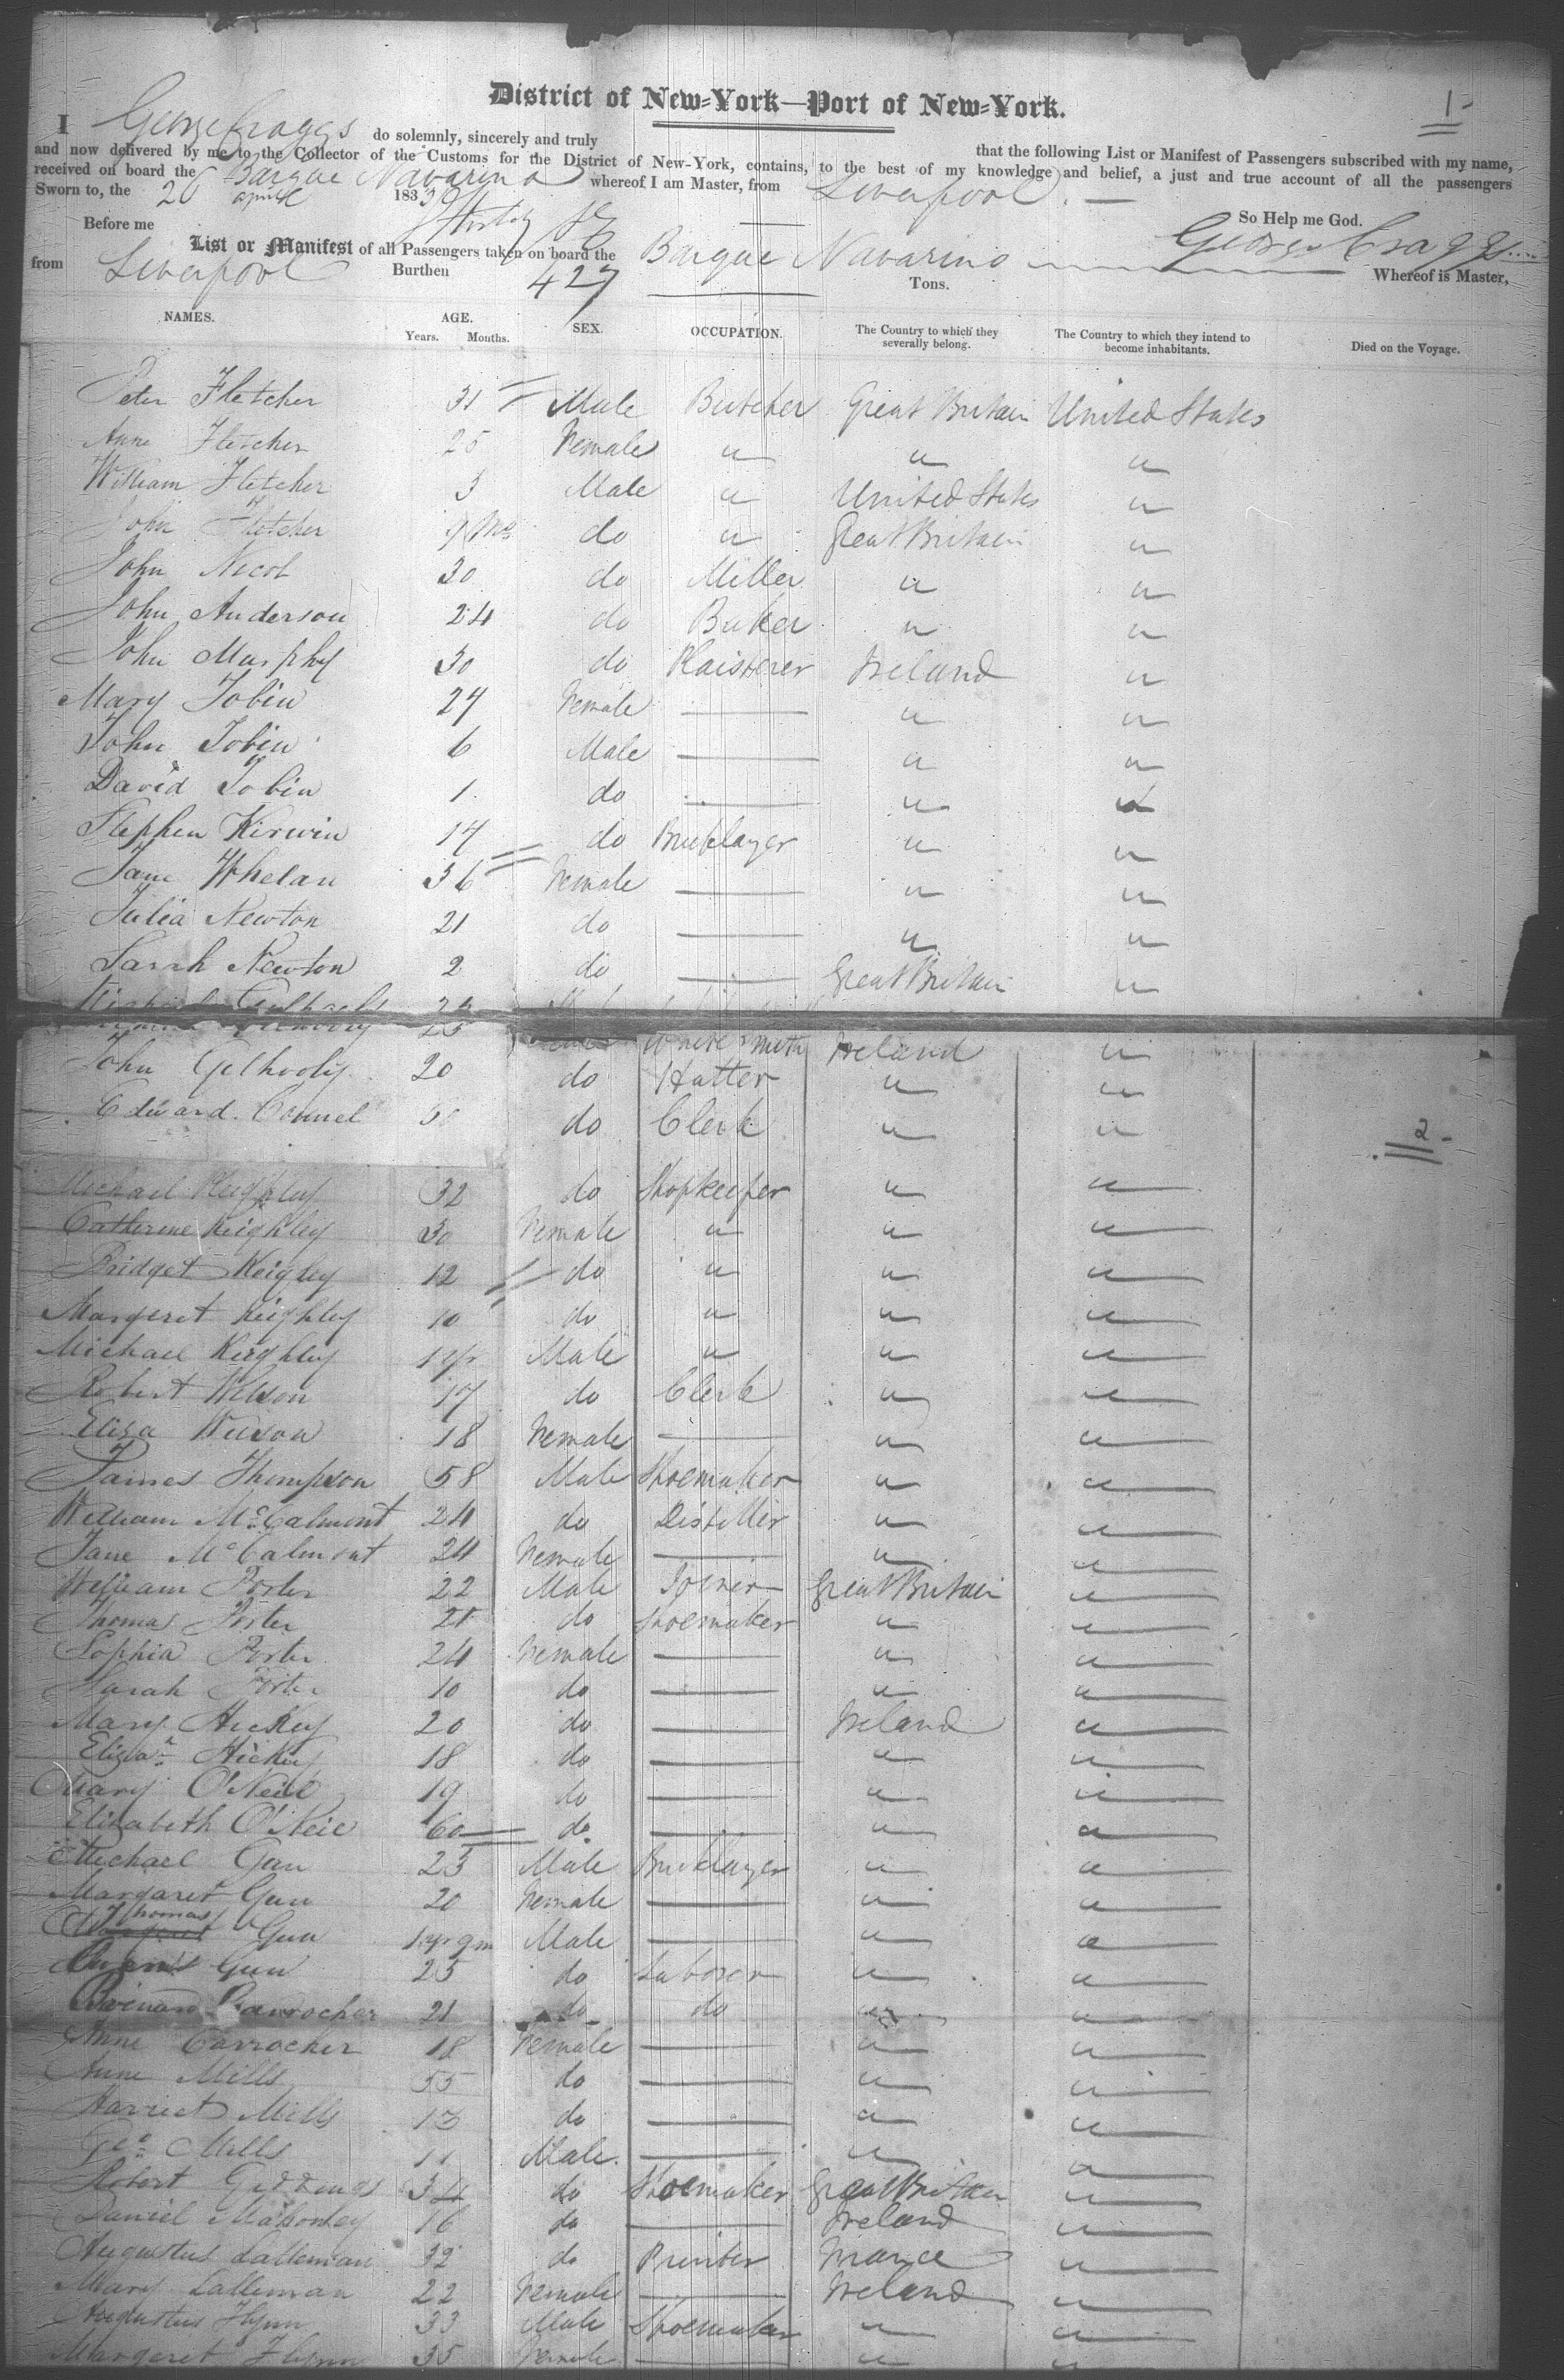 1
District of New-York—Port of New-York.
I George Craggs do solemnly, sincerely and truly that the following List or Manifest of Passengers subscribed with my name,
and now delivered by me to the Collector of the Customs for the District of New-York, contains, to the best of my knowledge and belief, a just and true account of all the passengers
received on board the Barque Navarino whereof I am Master, from Liverpool
Sworn to, the 26 April 183
Before me So Help me God.
George Craggs
List or Manifest of all Passengers taken on board the Barque Navarino Whereof is Master,
from Liverpool Burthen 427 Tons.
NAMES. AGE. SEX. OCCUPATION. The Country to which they severally belong. The Country to which they intend to become inhabitants. Died on the Voyage.
Years. Months.
Peter Fletcher 31 Male Butcher Great Britain United States
Anne Fletcher 25 Female " " "
William Fletcher 3 Male " United States "
John Fletcher 9 Mos do " Great Britain "
John Nicol 30 do Miller " "
John Anderson 24 do Baker " "
John Murphy 30 do Plaisterer Ireland "
Mary Tobin 27 Female — " "
John Tobin 6 Male — " "
David Tobin 1 do — " "
Stephen Kirwin 17 do Bricklayer " "
Jane Whelan 36 Female — " "
Julia Newton 21 do — " "
Sarah Newton 2 do — Great Britain "
White Smith Ireland "
John Gilhooly 20 do Hatter " "
Edward Connel do Clerk " "
2
Michael Keighley 32 do Shopkeeper " "
Catherine Keighley 30 Female " " "
Bridget Keigley 12 do " " "
Margeret Keighley 10 do " " "
Michael Keighley 1 yr Male " " "
Robert Wilson 17 do Clerk " "
Eliza Wilson 18 Female — " "
James Thompson 58 Male Shoemaker " "
William McCalmont 24 do Distiller " "
Jane McCalmont 24 Female — " "
William Porter 22 Male Joiner Great Britain "
Thomas Porter 21 do Shoemaker " "
Sophia Porter 24 Female — " "
Sarah Porter 10 do — " "
Mary Hickey 20 do — Ireland "
Elizath Hickey 18 do — " "
Mary O'Neil 19 do — " "
Elizabeth O'Neil 60 do — " "
Michael Gun 23 Male Bricklayer " "
Margaret Gun 20 Female — " "
Thomas Gun 1 yr 9 m Male — " "
Gun 25 do Laborer " "
Carrocher 21 do do " "
Anne Carrocher 18 Female — " "
Anne Mills 55 do — " "
Harriet Mills 13 do — " "
Geo Mills 11 Male — " "
Robert Giddings 34 do Shoemaker Great Britain "
Daniel Mahoney 16 do — Ireland "
Augustus Lalleman 32 do Printer France "
Mary Lalleman 22 Female — Ireland "
Augustus Flynn 33 Male Shoemaker " "
Margeret Flynn 35 Female — " "